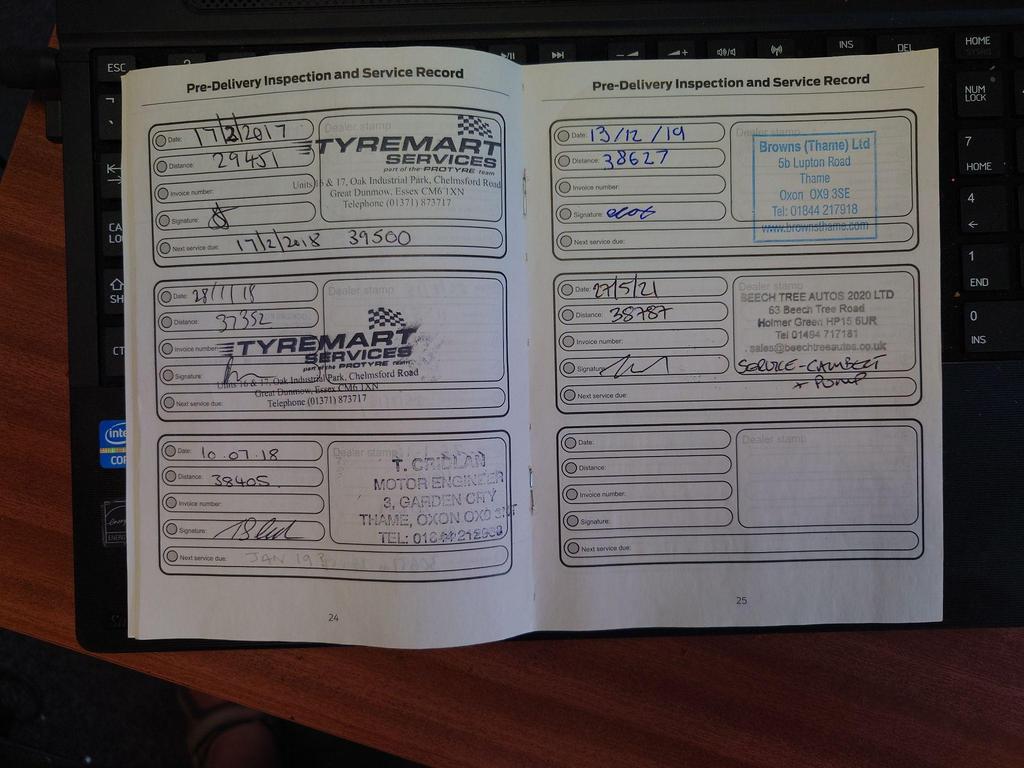 Pre-Delivery Inspection and Service Record
Date: 17/2/2017
Distance: 29451
Invoice number:
Signature:
Next service due: 17/2/2018 39500
Dealer stamp
TYREMART
SERVICES
part of the PROTYRE team
Units 16 & 17, Oak Industrial Park, Chelmsford Road
Great Dunmow, Essex CM6 1XN
Telephone (01371) 873717
Date: 28/1/18
Distance: 37352
Invoice number:
Signature:
Next service due:
Dealer stamp
TYREMART
SERVICES
part of the PROTYRE team
Units 16 & 17, Oak Industrial Park, Chelmsford Road
Great Dunmow, Essex CM6 1XN
Telephone (01371) 873717
Date: 10.07.18
Distance: 38405
Invoice number:
Signature:
Next service due: JAN 19
Dealer stamp
T. CRIDLAN
MOTOR ENGINEER
3, GARDEN CITY
THAME, OXON
TEL: 01844
24
Pre-Delivery Inspection and Service Record
Date: 13/12/19
Distance: 38627
Invoice number:
Signature:
Next service due:
Dealer stamp
Browns (Thame) Ltd
5b Lupton Road
Thame
Oxon OX9 3SE
Tel: 01844 217918
www.brownsthame.com
Date: 27/5/21
Distance: 38787
Invoice number:
Signature:
Next service due:
BEECH TREE AUTOS 2020 LTD
63 Beech Tree Road
Holmer Green HP15 6UR
Tel 01494 717181
sales@beechtreeautos.co.uk
SERVICE - CAMBELT
+ PUMP
Date:
Distance:
Invoice number:
Signature:
Next service due:
Dealer stamp
25
ESC
INS
DEL
HOME
NUM
LOCK
7
HOME
4
1
END
0
INS